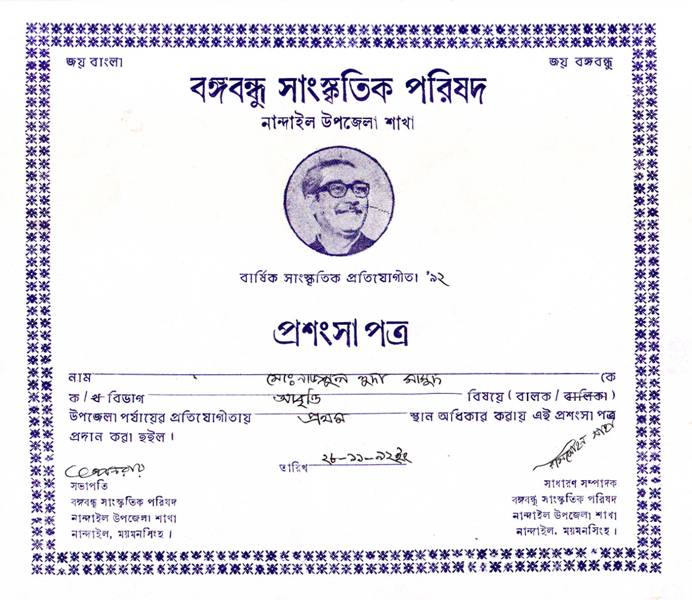 জয় বাংলা
জয় বঙ্গবন্ধু
বঙ্গবন্ধু সাংস্কৃতিক পরিষদ
নান্দাইল উপজেলা শাখা
বার্ষিক সাংস্কৃতিক প্রতিযোগীতা '৯২
প্রশংসা পত্র
নাম মোঃ নাজমুল হুদা মাসুদ কে
ক / খ বিভাগ আবৃত্তি বিষয়ে ( বালক / বালিকা )
উপজেলা পর্যায়ের প্রতিযোগীতায় প্রথম স্থান অধিকার করায় এই প্রশংসা পত্র
প্রদান করা হইল ।
তারিখ ২৮-১১-৯২ইং
সভাপতি
বঙ্গবন্ধু সাংস্কৃতিক পরিষদ
নান্দাইল উপজেলা শাখা
নান্দাইল, ময়মনসিংহ ।
সাধারণ সম্পাদক
বঙ্গবন্ধু সাংস্কৃতিক পরিষদ
নান্দাইল উপজেলা শাখা
নান্দাইল, ময়মনসিংহ ।